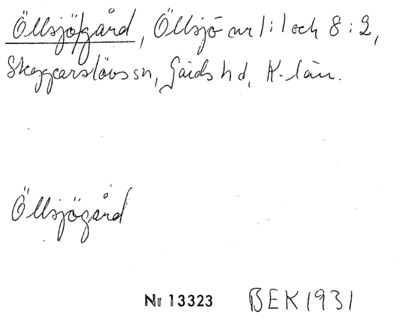 Öllsjö/gård, Öllsjö nr 1:1 och 8:2,
Skepparslövs sn, Gärds hd, K-län.
Öllsjögård
Nr 13323 BEK 1931